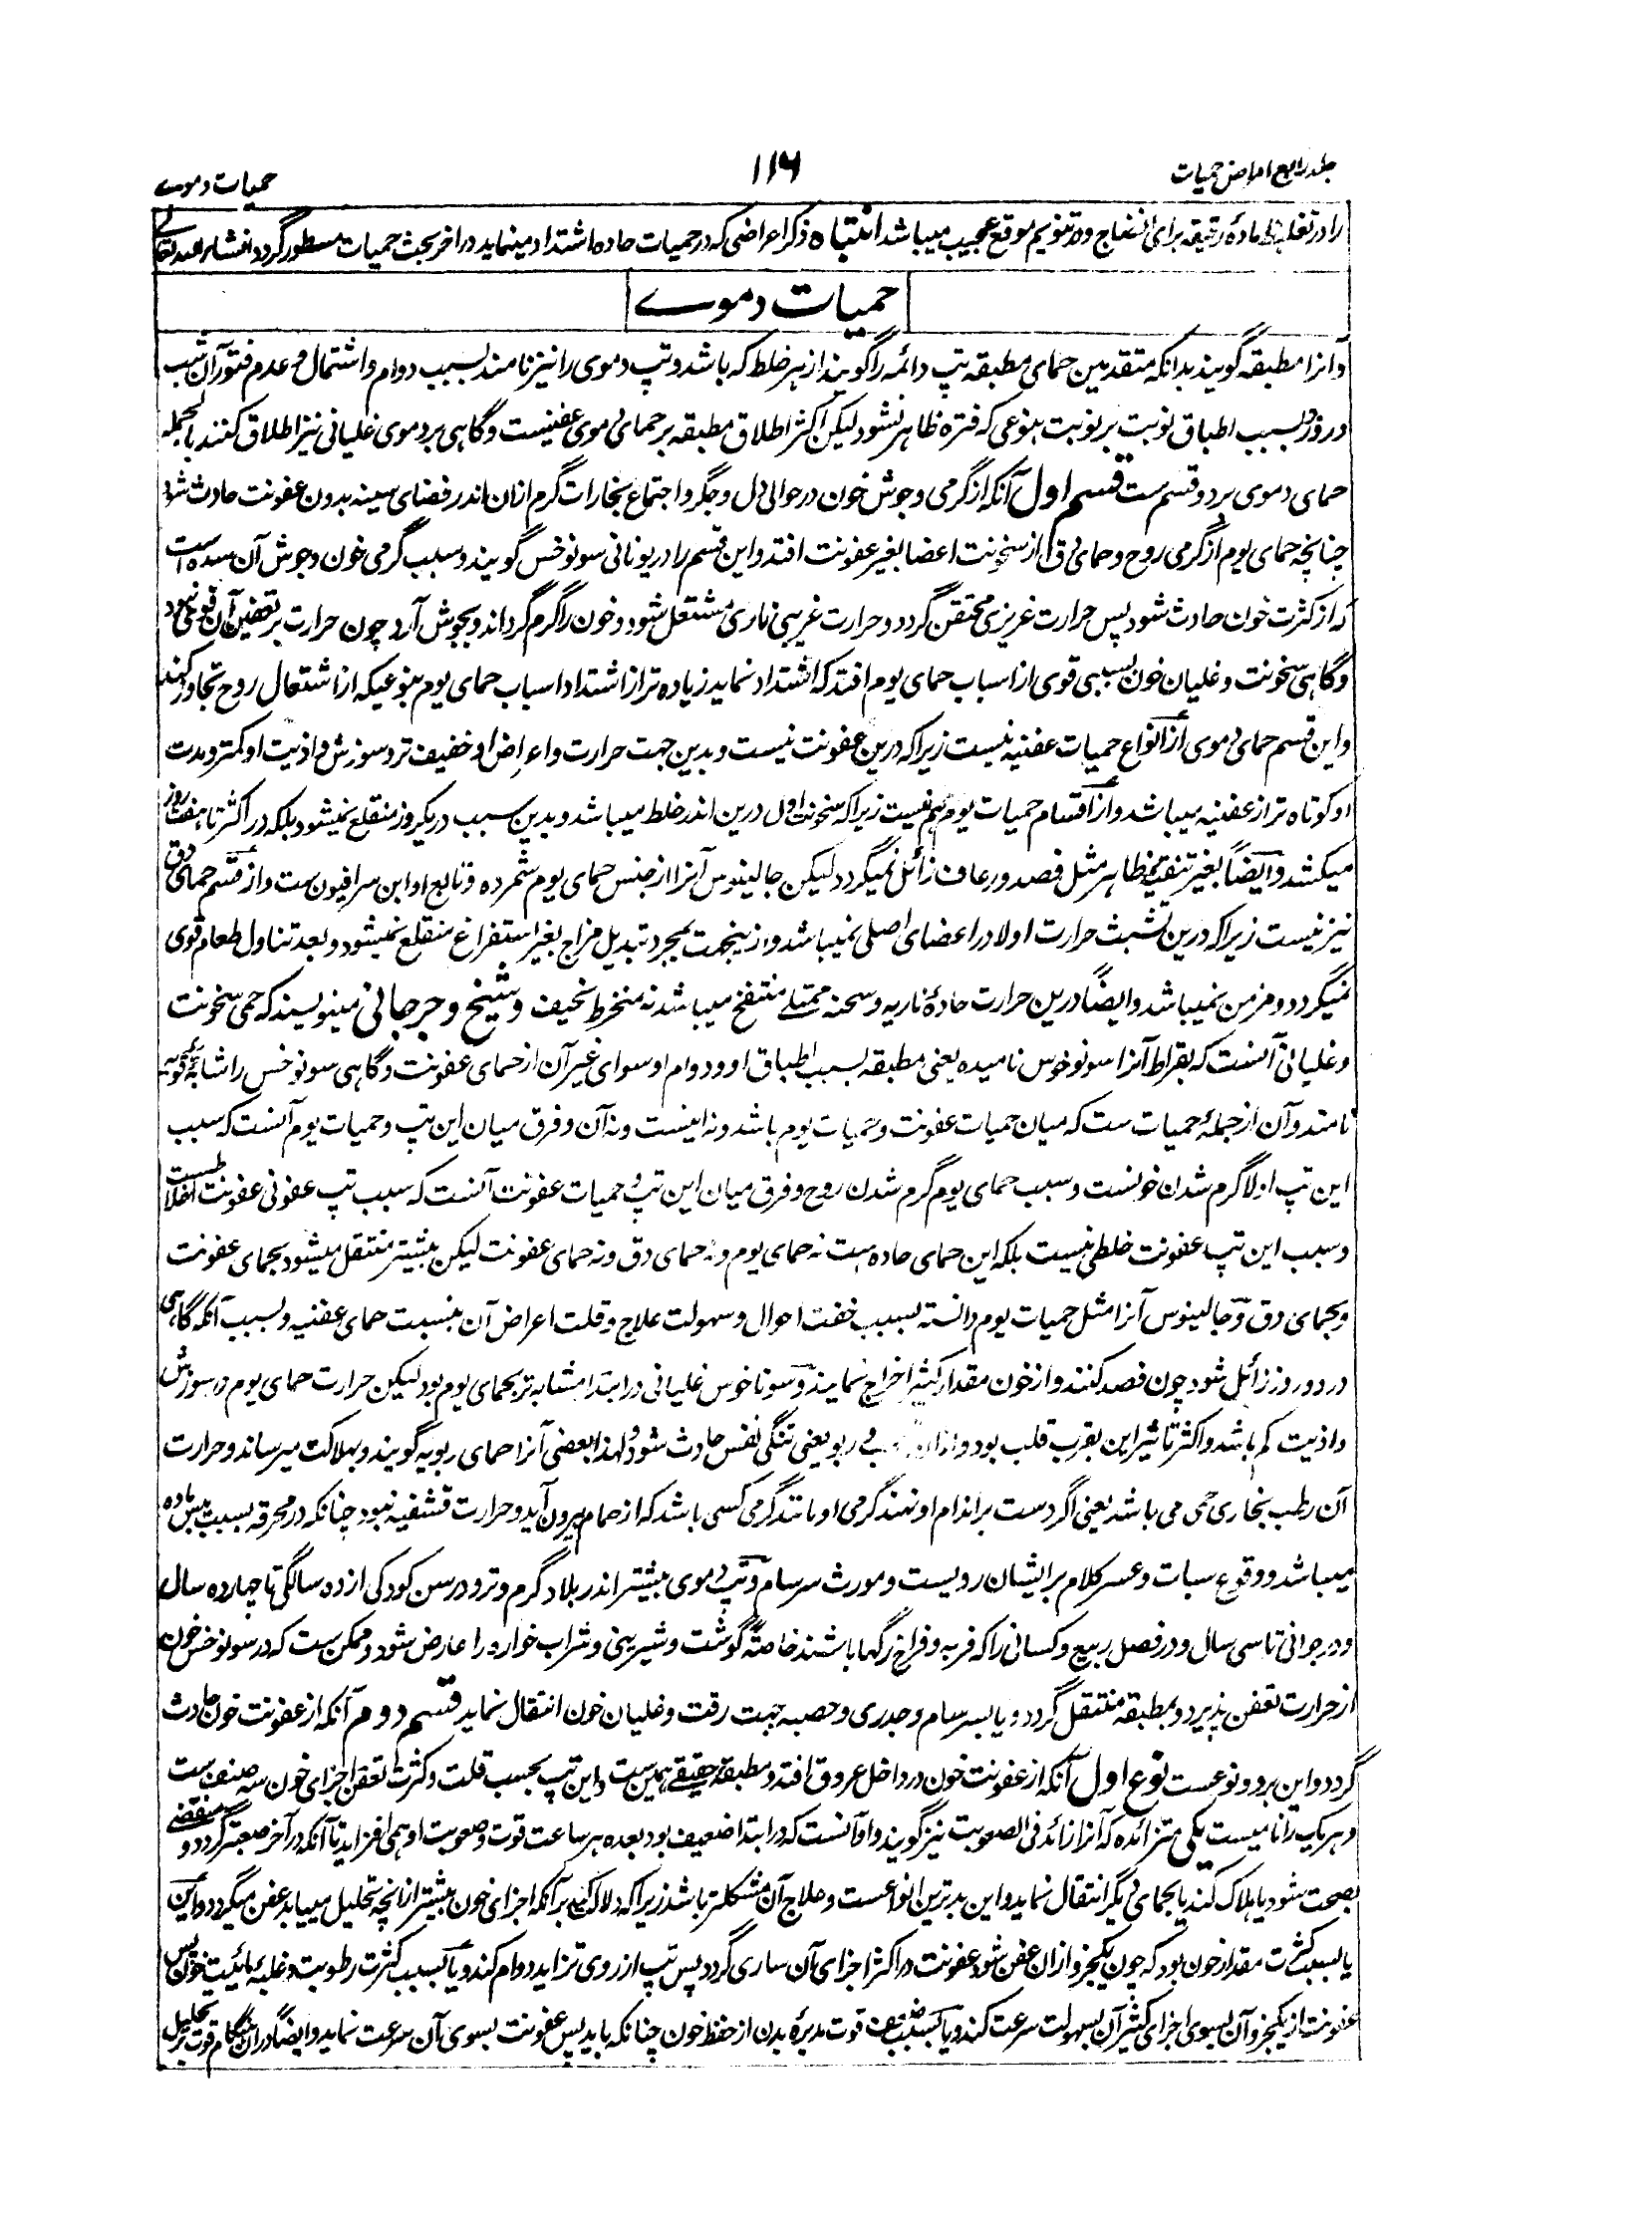 جلد رابع امراض حمیات
۱۱۶
حمیات دموے
را در تغلیظ مادۂ رقیقہ برای انضاج و در تنویم موقع عجیب میباشد انتباہ ذکر اعراضی کہ در حمیات حادہ اشتداد مینماید در آخر بحث حمیات مسطور گردد انشاء اللہ تعالے
حمیات دموے
و آنرا مطبقہ گویند بدانکہ متقدمین حمای مطبقہ تپ دائمہ را گویند از ہر خلط کہ باشد و تپ دموی را نیز نامند بسبب دوام و اشتمال و عدم فتور آن شب
و روز و بسبب اطباق نوبت بر نوبت بنوعی کہ فترہ ظاہر نشود لیکن اکثر اطلاق مطبقہ بر حمای دموی عفنیست و گاہی بر دموی غلیانی نیز اطلاق کنند بالجملہ
حمای دموی بر دو قسم ست قسم اول آنکہ از گرمی و جوش خون در حوالی دل و جگر و اجتماع بخارات گرم ازان اندر فضای سینہ بدون عفونت حادث شود
چنانچہ حمای یوم از گرمی روح و حمای دق از سخونت اعضا بغیر عفونت افتد و این قسم را در یونانی سونوخس گویند و سبب گرمی خون و جوش آن سدہ است
کہ از کثرت خون حادث شود پس حرارت غریزی محتقن گردد و حرارت غریبی ناری مشتعل شود و خون را گرم گرداند و بجوش آرد چون حرارت بر تعفین آن قوی نبود
و گاہی سخونت و غلیان خون بسببی قوی از اسباب حمای یوم افتد کہ اشتداد نماید زیادہ تر از اشتداد اسباب حمای یوم بنوعیکہ از اشتعال روح تجاوز کند
و این قسم حمای دموی از انواع حمیات عفنیہ نیست زیرا کہ درین عفونت نیست و بدین جہت حرارت و اعراض او خفیف تر و سوزش و اذیت او کمتر و مدت
او کوتاہ تر از عفنیہ میباشد و از اقسام حمیات یوم ہم نیست زیرا کہ سخونت اول درین اندر خلط میباشد و بدین سبب در یکروز منقلع نمیشود بلکہ در اکثر تا ہفت روز
میکشد و ایضاً بغیر تنقیۂ ظاہر مثل فصد و رعاف زائل نمیگردد لیکن جالینوس آنرا از جنس حمای یوم شمردہ و تابع او ابن سرافیون ست و از قسم حمای دق
نیز نیست زیرا کہ درین تشبث حرارت اولا در اعضای اصلی نمیباشد و ازینجہت بمجرد تبدیل مزاج بغیر استفراغ منقلع نمیشود و بعد تناول طعام قوی
نمیگردد و مزمن نمیباشد و ایضاً درین حرارت حادۂ ناریہ و سحنہ ممتلے منتفخ میباشد نہ منخرط نحیف و شیخ و جرجانی مینویسند کہ حمی سخونت
و غلیانی آنست کہ بقراط آنرا سونوخوس نامیدہ یعنی مطبقہ بسبب اطباق او و دوام او سوای غیر آن از حمای عفونت و گاہی سونوخس را
نامند و آن از جملۂ حمیات ست کہ میان حمیات عفونت و حمیات یوم باشد و نہ اینست و نہ آن و فرق میان این تپ و حمیات یوم آنست کہ سبب
این تپ اولا گرم شدن خونست و سبب حمای یوم گرم شدن روح و فرق میان این تپ و حمیات عفونت آنست کہ سبب تپ عفونی عفونت اخلاطست
و سبب این تپ عفونت خلطی نیست بلکہ این حمای حادہ ست نہ حمای یوم و نہ حمای دق و نہ حمای عفونت لیکن بیشتر منتقل میشود بحمای عفونت
و بحمای دق و جالینوس آنرا مثل حمیات یوم دانستہ بسبب خفت احوال و سہولت علاج و قلت اعراض آن بنسبت حمای عفنیہ و بسبب آنکہ گاہی
در دو روز زائل شود چون فصد کنند و از خون مقدار کثیر اخراج نمایند و سوناخوس غلیانی در ابتدا مشابہ تر بحمای یوم بود لیکن حرارت حمای یوم و سوزش
و اذیت کم باشد و اکثر تاثیر این بقرب قلب بود و ربو یعنی تنگی نفس حادث شود و لہذا بعضی آنرا حمای ربویہ گویند و بہلاکت میرساند و حرارت
آن رطب بخاری حمی می باشد یعنی اگر دست بر اندام او نہند گرمی او مانند گرمی کسی باشد کہ از حمام بیرون آید و حرارت قشفیہ نبود چنانکہ در محرقہ بسبب یبس مادہ
میباشد و وقوع سبات و عسر کلام بر ایشان ردیست و مورث سرسام و تپ دموی بیشتر اندر بلاد گرم و تر و در سن کودکی از دہ سالگی تا چہاردہ سال
و در جوانی تا سی سال و در فصل ربیع و کسانی را کہ فربہ و فراخ رگہا باشند خاصۃً گوشت و شیرینی و شراب خوارہ را عارض شود و ممکن ست کہ در سونوخس خون
از حرارت تعفن پذیرد و بمطبقہ منتقل گردد و یا بسرسام و جدری و حصبہ بجہت رقت و غلیان خون انتقال نماید قسم دوم آنکہ از عفونت خون حادث
گردد و این بر دو نوعست نوع اول آنکہ از عفونت خون در داخل عروق افتد و مطبقہ حقیقے ہمین ست و این تپ بحسب قلت و کثرت تعفن اجزای خون سہ صنف ست
و ہر یک را نامیست یکی متزائدہ کہ آنرا زائد فی الصعوبت نیز گویند و او آنست کہ در ابتدا ضعیف بود بعدہ ہر ساعت قوت و صعوبت او ہمی افزاید تا آنکہ در آخر صعبتر گردد و منقضے
بصحت شود یا ہلاک کند یا بحمای دیگر انتقال نماید و این بدترین انواعست و علاج آن مشکلتر باشد زیرا کہ دلالت کند بر آنکہ اجزای خون بیشتر ازانچہ تحلیل مییابد عفن میگردد و این
یا بسبب کثرت مقدار خون بود کہ چون یکجزو ازان عفن شود عفونت در اکثر اجزای آن ساری گردد پس تپ از روی تزاید دوام کند و یا بسبب کثرت رطوبت و غلبۂ مائیت خون پس
عفونت از یکجزو آن بسوی اجزای کثیر آن بسہولت سرعت کند و یا بسبب ضعف قوت مدبرۂ بدن از حفظ خون چنانکہ باید پس عفونت بسوی آن سرعت نماید و ایضاً دران ہنگام قوت بر تحلیل